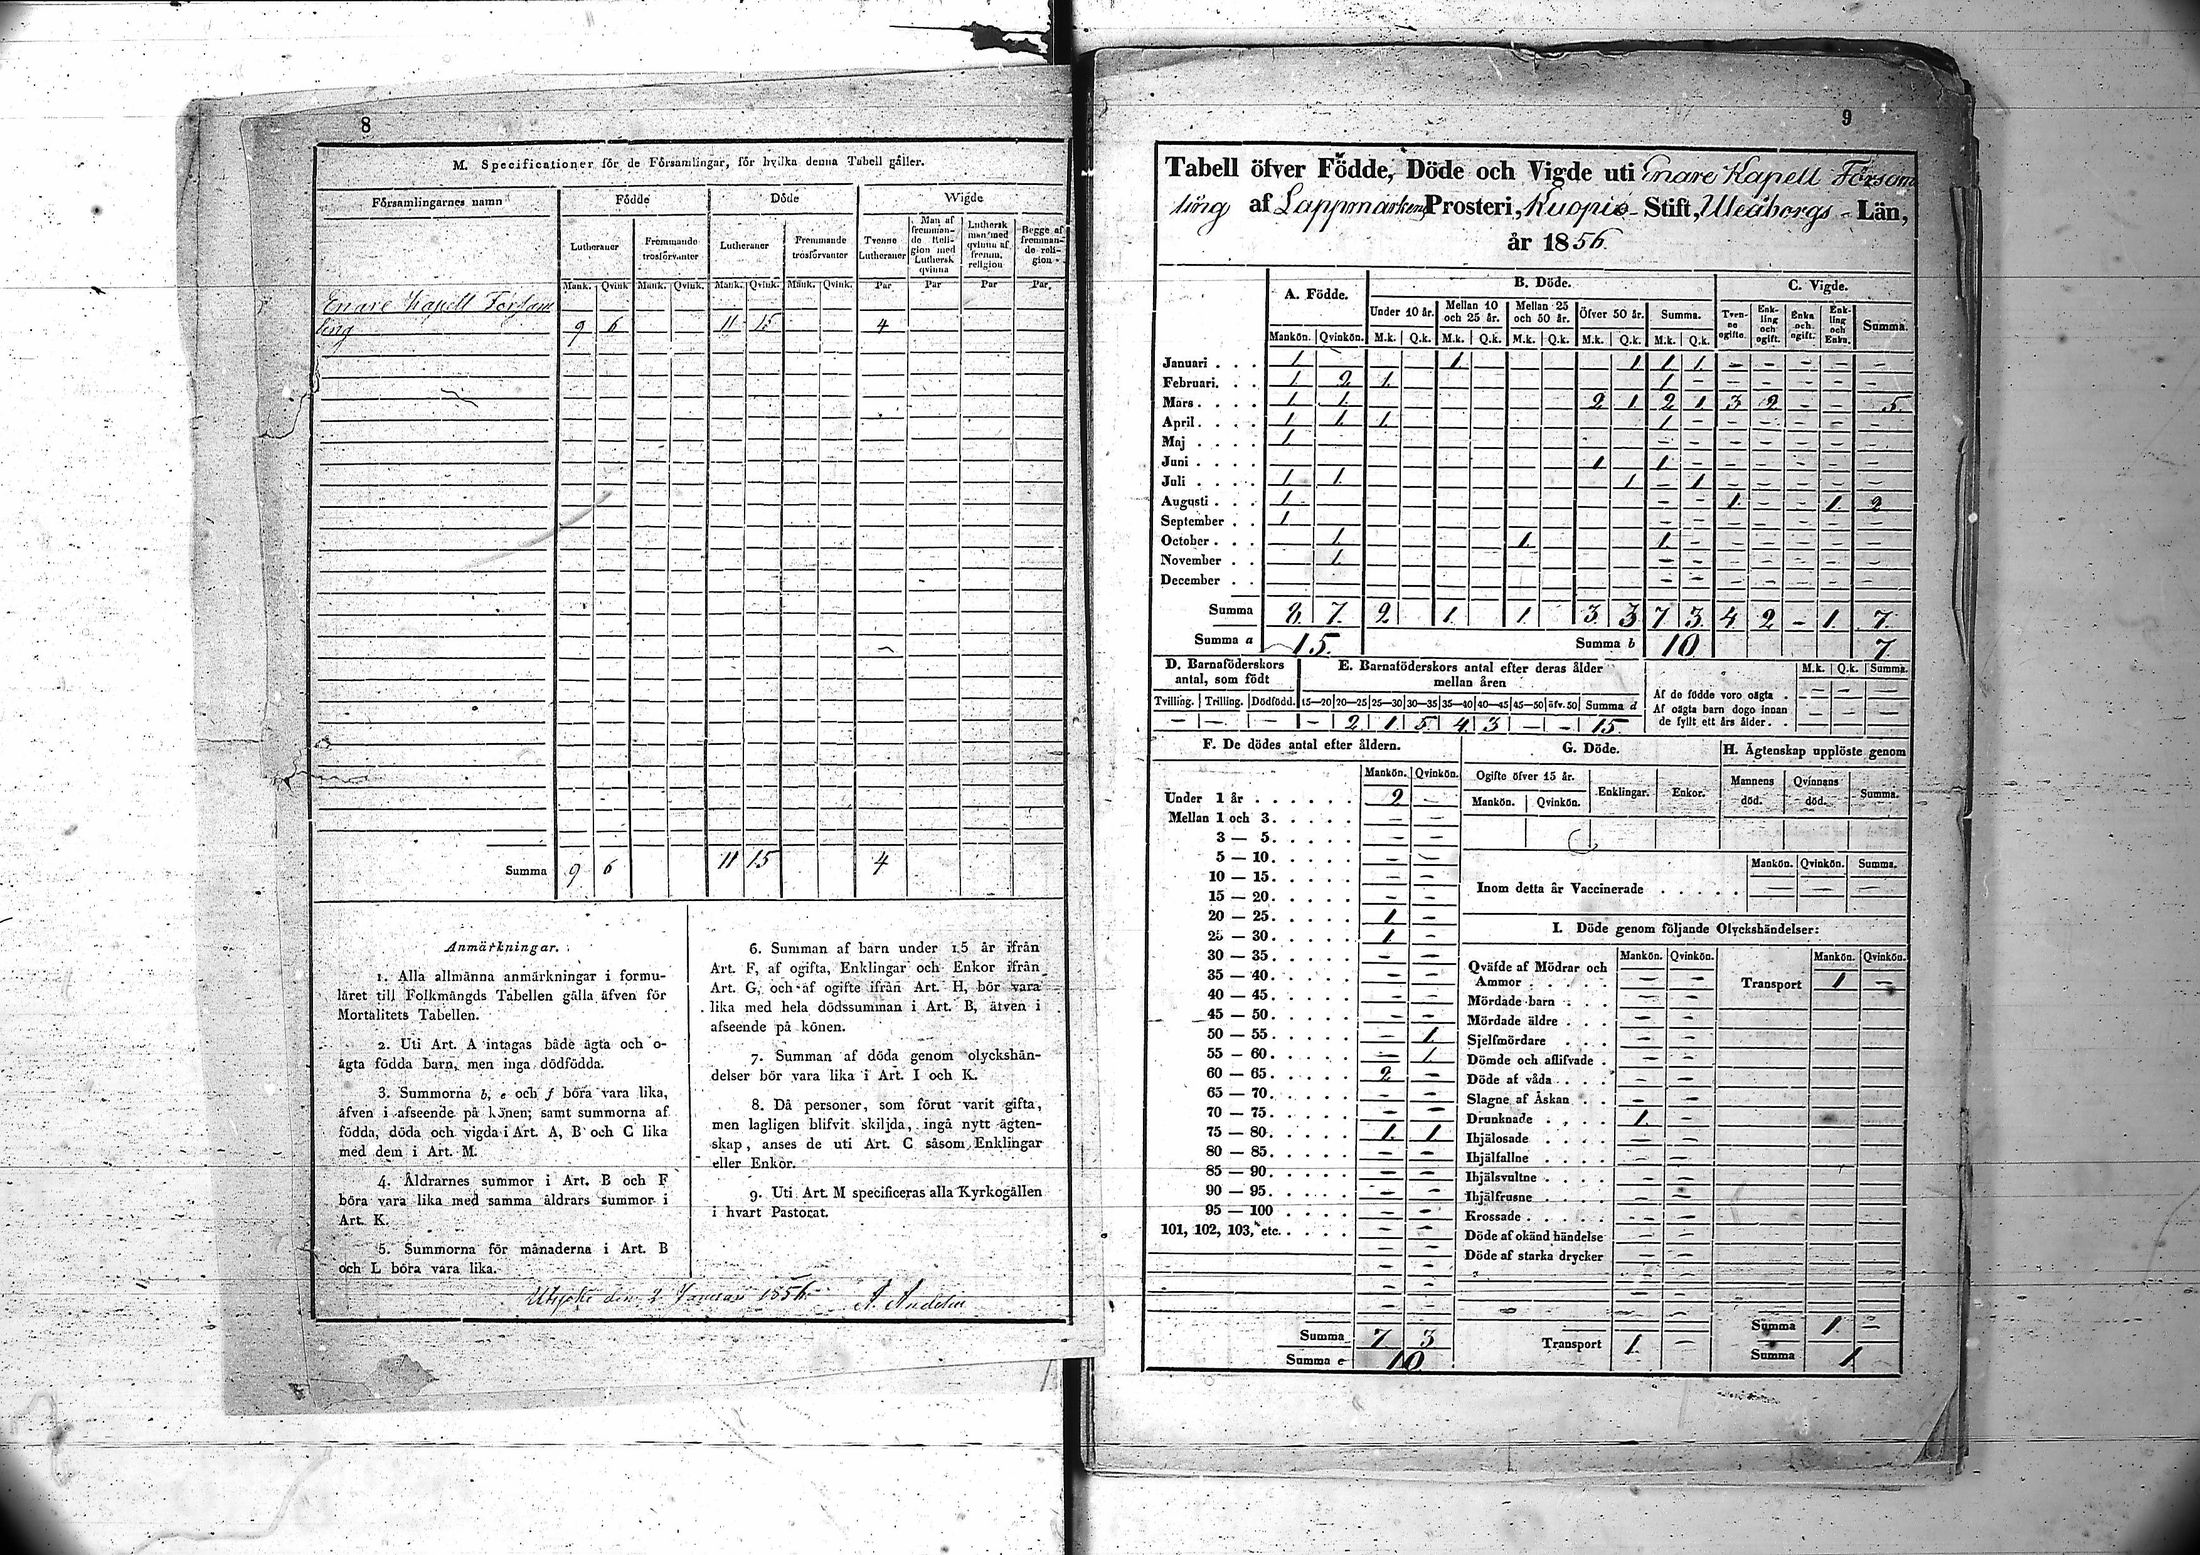 8
M. Specificationer för de Församlingar, för hvilka denna Tabell gäller.
Församlingarnes namn
Födde
Döde
Wigde
Lutheraner
Främmande trosförvanter
Lutheraner
Fremmande trosförvanter
Tvenne Lutheraner
Man af fremmande Religion med Luthersk qvinna
Luthersk man med qvinna af fremm. religion
Begge af fremmande religion
Mank. Qvink. Mank. Qvink. Mank. Qvink. Mank. Qvink. Par Par Par Par
Enare Kapell Försam
ling 9 6 11 15 4
Summa 9 6 11 15 4
Anmärkningar.
1. Alla allmänna anmärkningar i formu-
läret till Folkmängds Tabellen gälla äfven för
Mortalitets Tabellen.
2. Uti Art. A intagas både ägta och o-
ägta födda barn, men inga dödfödda.
3. Summorna b, e och f böra vara lika,
äfven i afseende på könen; samt summorna af
födda, döda och vigda i Art. A, B och C lika
med dem i Art. M.
4. Åldrarnes summor i Art. B och F
böra vara lika med samma åldrars summor i
Art. K.
5. Summorna för månaderna i Art. B
och L böra vara lika.
6. Summan af barn under 15 år ifrån
Art. F, af ogifta, Enklingar och Enkor ifrån
Art. G, och af ogifte ifrån Art. H, bör vara
lika med hela dödssumman i Art. B, äfven i
afseende på könen.
7. Summan af döda genom olyckshän-
delser bör vara lika i Art. I och K.
8. Då personer, som förut varit gifta,
men lagligen blifvit skiljda, ingå nytt ägten-
skap, anses de uti Art. C såsom Enklingar
eller Enkor.
9. Uti Art. M specificeras alla Kyrkogällen
i hvart Pastorat.
Utsjoki den 2 Januari 1856. A. Andelin
9
Tabell öfver Födde, Döde och Vigde uti Enare Kapell Försam
ling af Lappmarkens Prosteri, Kuopio Stift, Uleåborgs Län,
år 1856.
A. Födde.
B. Döde.
C. Vigde.
Under 10 år.
Mellan 10 och 25 år.
Mellan 25 och 50 år.
Öfver 50 år.
Summa.
Tvenne ogifte.
Enkling och ogift.
Enka och ogift.
Enkling och Enka.
Summa.
Mankön. Qvinkön. M.k. Q.k. M.k. Q.k. M.k. Q.k. M.k. Q.k. M.k. Q.k.
Januari . . . 1. 1. 1. 1. 1. – – – – –
Februari. . . 1. 2. 1. 1. – – – – – –
Mars . . . . 1. 1. 2. 1. 2. 1. 3. 2. – – 5.
April . . . . 1. 1. 1. 1. – – – – – –
Maj . . . . 1. – – – – – – –
Juni . . . . 1. 1. – – – – – –
Juli . . . . 1. 1. 1. – 1. – – – – –
Augusti . . . 1. – – 1. – – 1. 2.
September . . 1. – – – – – – –
October . . . 1. 1. 1. – – – – – –
November . . 1. – – – – – – –
December . . – – – – – – –
Summa 8. 7. 2. 1. 1. 3. 3 7 3. 4. 2 – 1. 7.
Summa a 15. Summa b 10 7
D. Barnaföderskors antal, som födt
Tvilling. Trilling. Dödfödd.
– – –
E. Barnaföderskors antal efter deras ålder mellan åren
15—20 20—25 25—30 30—35 35—40 40—45 45—50 öfv. 50 Summa d
– 2. 1. 5. 4. 3. – – 15.
M.k. Q.k. Summa.
Af de födde voro oägta . – – –
Af oägta barn dogo innan
de fyllt ett års ålder. . – – –
F. De dödes antal efter åldern.
Mankön. Qvinkön.
Under 1 år . . . . . . 2 –
Mellan 1 och 3. . . . . – –
3 — 5. . . . . – –
5 — 10. . . . . – –
10 — 15. . . . . – –
15 — 20. . . . . – –
20 — 25. . . . . 1. –
25 — 30. . . . . 1. –
30 — 35. . . . . – –
35 — 40. . . . . – –
40 — 45. . . . . – –
45 — 50. . . . . – –
50 — 55. . . . . – 1.
55 — 60. . . . . – 1.
60 — 65. . . . . 2. –
65 — 70. . . . . – –
70 — 75. . . . . – –
75 — 80. . . . . 1. 1
80 — 85. . . . . – –
85 — 90. . . . . – –
90 — 95. . . . . – –
95 — 100 . . . . – –
101, 102, 103, etc. . . . . – –
Summa 7 3
Summa e 10
G. Döde.
Ogifte öfver 15 år.
Mankön. Qvinkön.
Enklingar. Enkor.
H. Ägtenskap upplöste genom
Mannens död. Qvinnans död. Summa.
Mankön. Qvinkön. Summa.
Inom detta år Vaccinerade . . . . . – – –
I. Döde genom följande Olyckshändelser:
Mankön. Qvinkön. Mankön. Qvinkön.
Qväfde af Mödrar och
Ammor . . . . . – –
Transport 1 –
Mördade barn . . . – –
Mördade äldre . . . – –
Sjelfmördare . . . – –
Dömde och aflifvade . – –
Döde af våda . . . – –
Slagne af Åskan . . – –
Drunknade . . . . 1. –
Ihjälosade . . . . – –
Ihjälfallne . . . . – –
Ihjälsvultne . . . . – –
Ihjälfrusne . . . . – –
Krossade . . . . . – –
Döde af okänd händelse – –
Döde af starka drycker – –
Summa 1. –
Transport 1. –
Summa 1